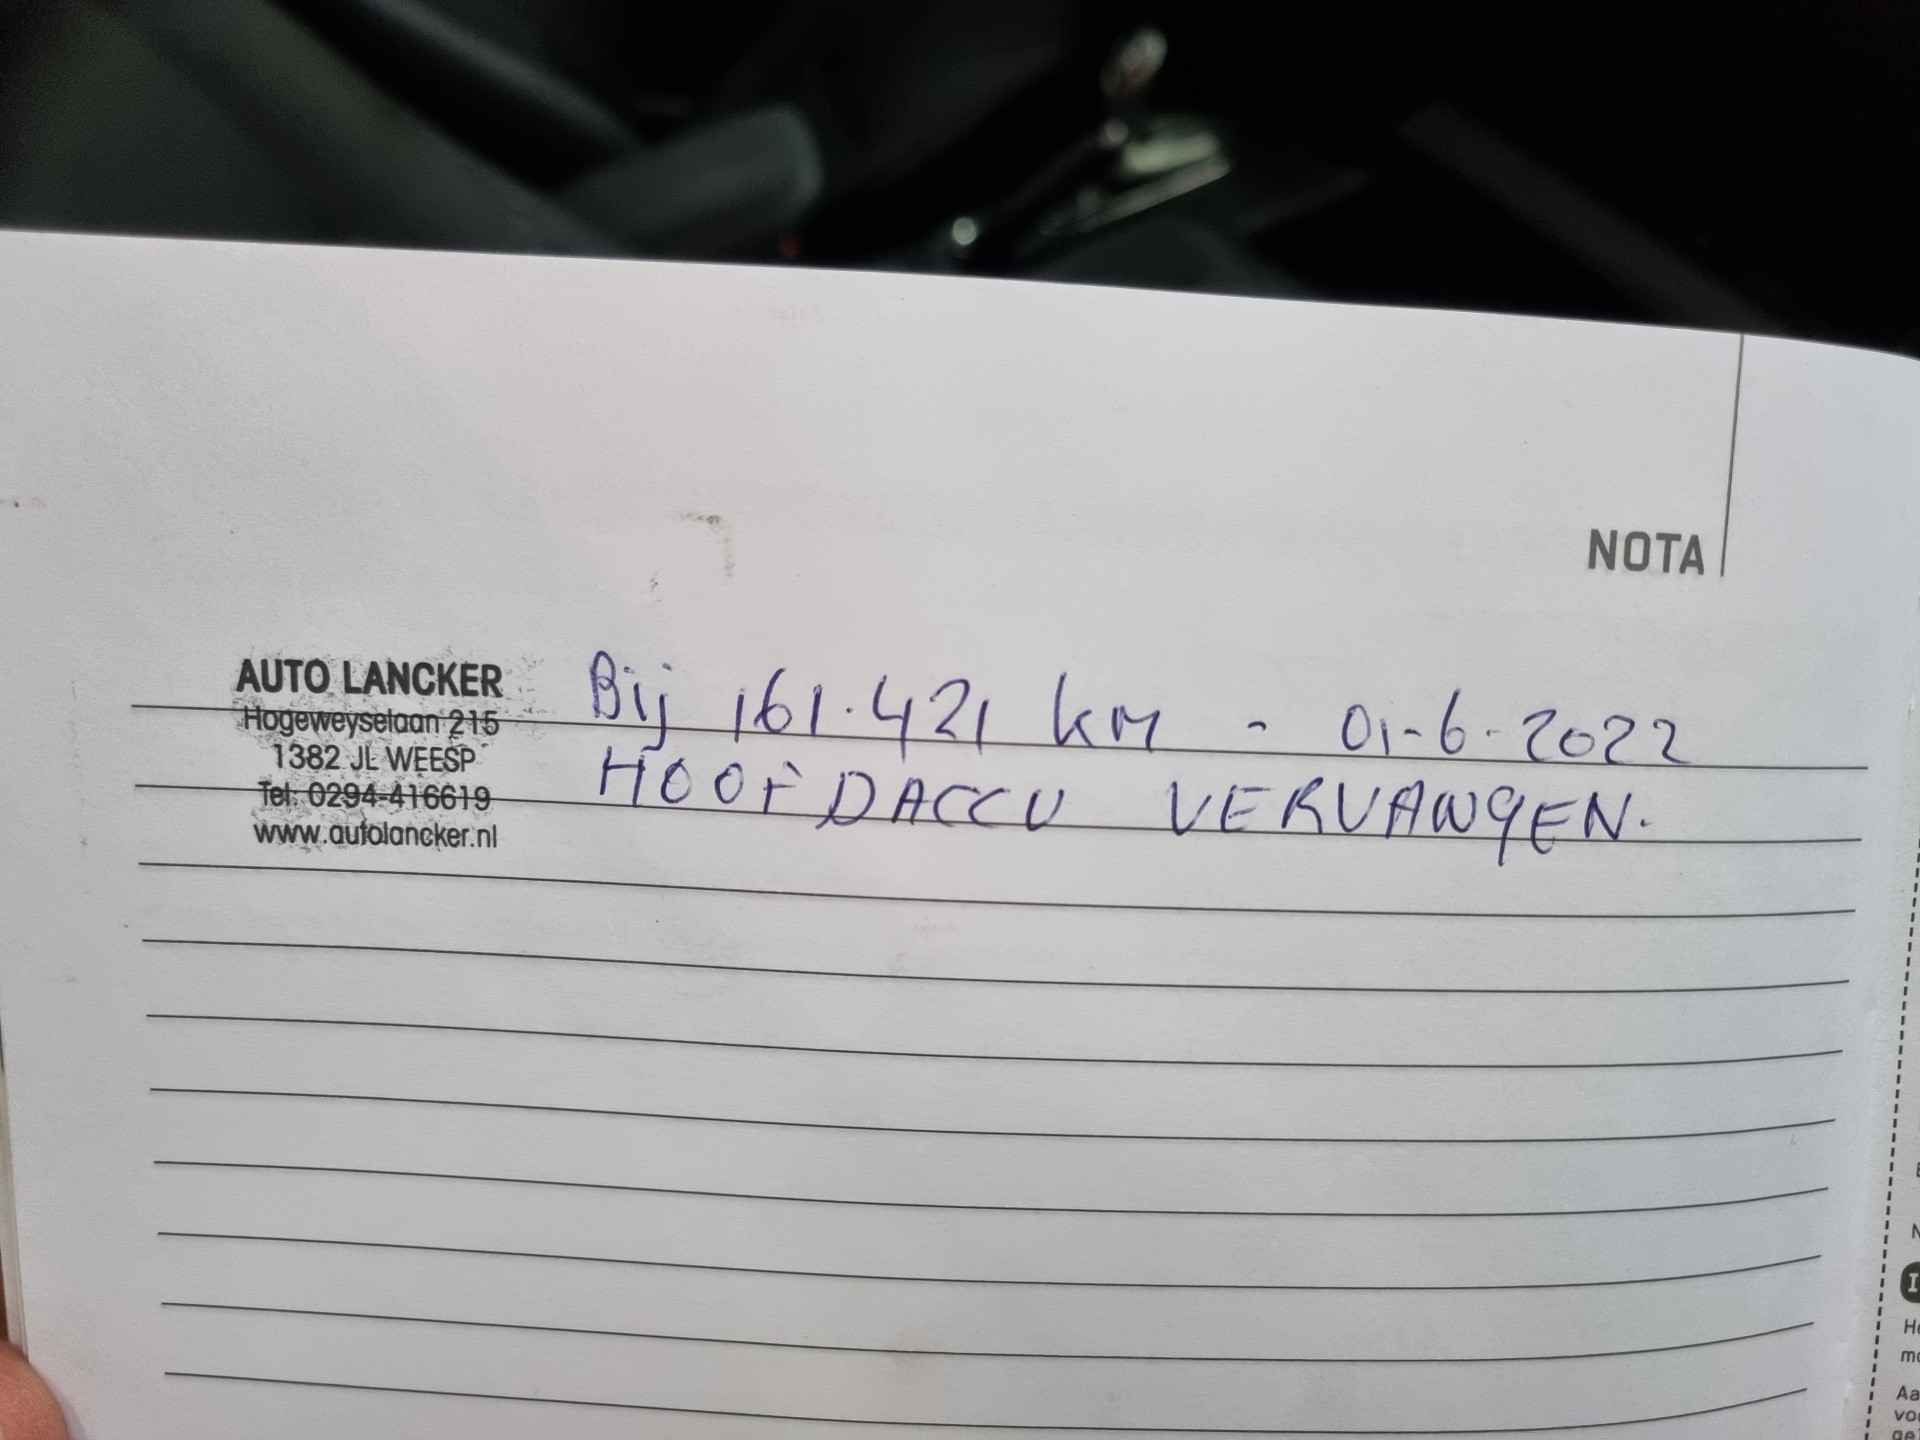 NOTA
AUTO LANCKER
Hogeweyselaan 215
1382 JL WEESP
Tel: 0294-416619
www.autolancker.nl
Bij 161.421 km - 01-6-2022
HOOFDACCU VERVANGEN.
He
mo
Aa
voo
ge